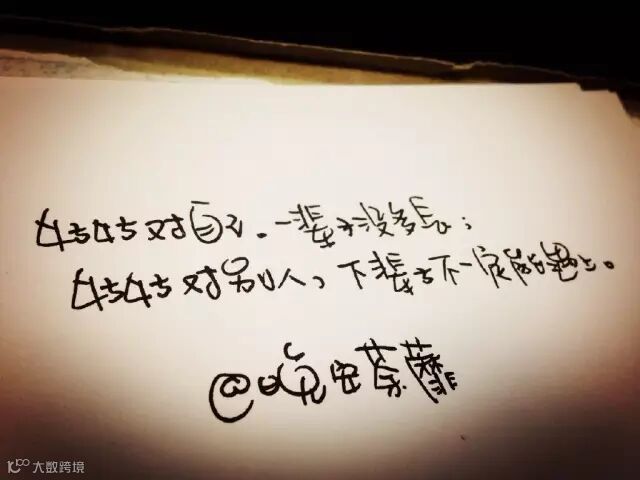 好好对自己、一辈子没多長；
好好对另以人，下辈子不一定能遇上。
@晚安荼蘼
大数跨境